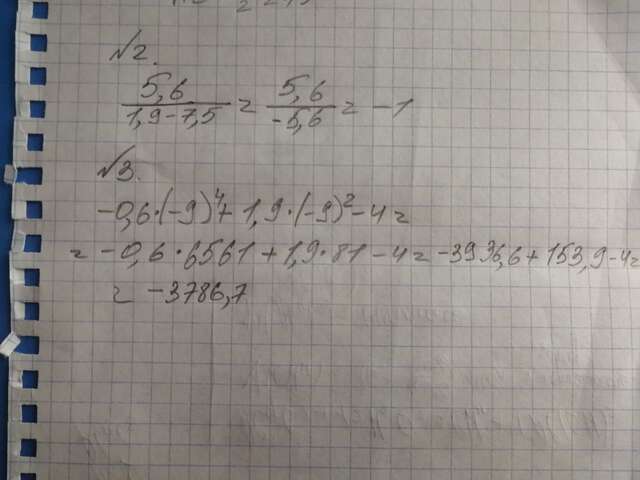 №2.
5,6 / 1,9-7,5 = 5,6 / -5,6 = -1
№3.
-0,6·(-9)⁴+ 1,9·(-9)²-4=
= -0,6·6561+1,9·81-4= -3936,6+153,9-4=
= -3786,7